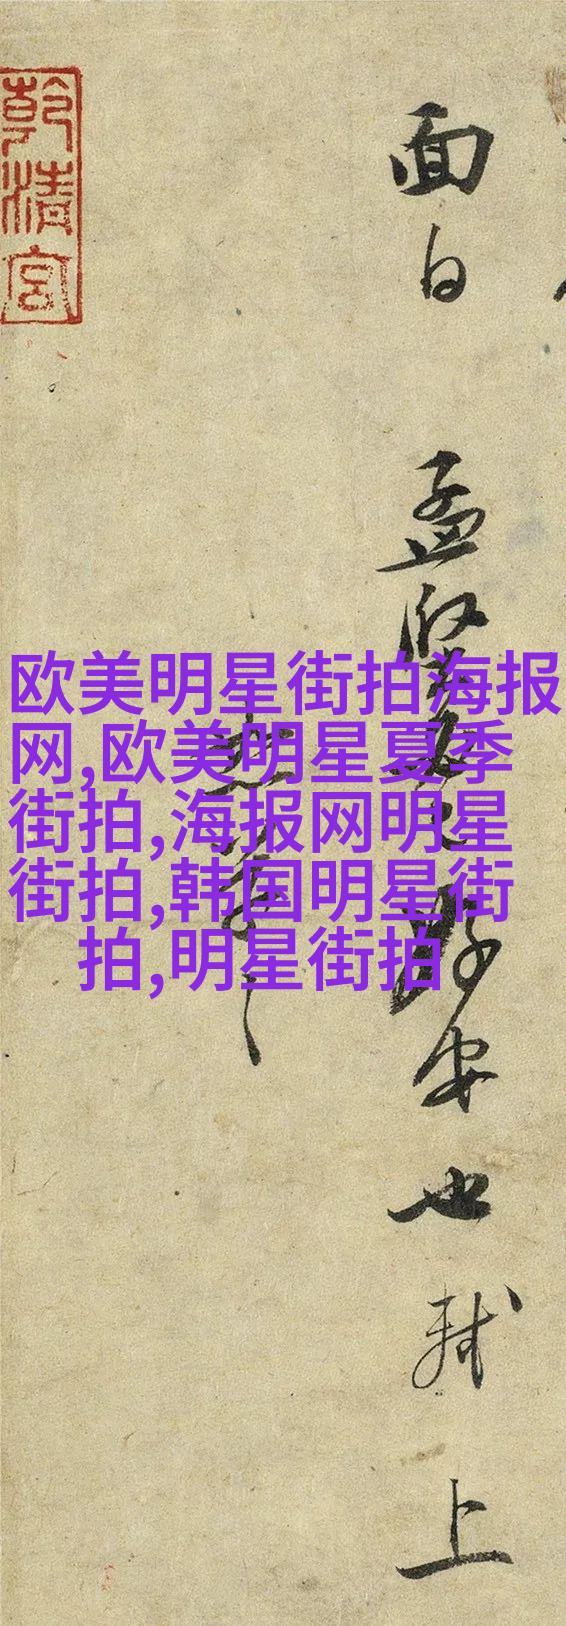 面白 孟堅必已好安也 軾上
恕草草
乾清宮
欧美明星街拍海报
网,欧美明星夏季
街拍,海报网明星
街拍,韩国明星街
拍,明星街拍